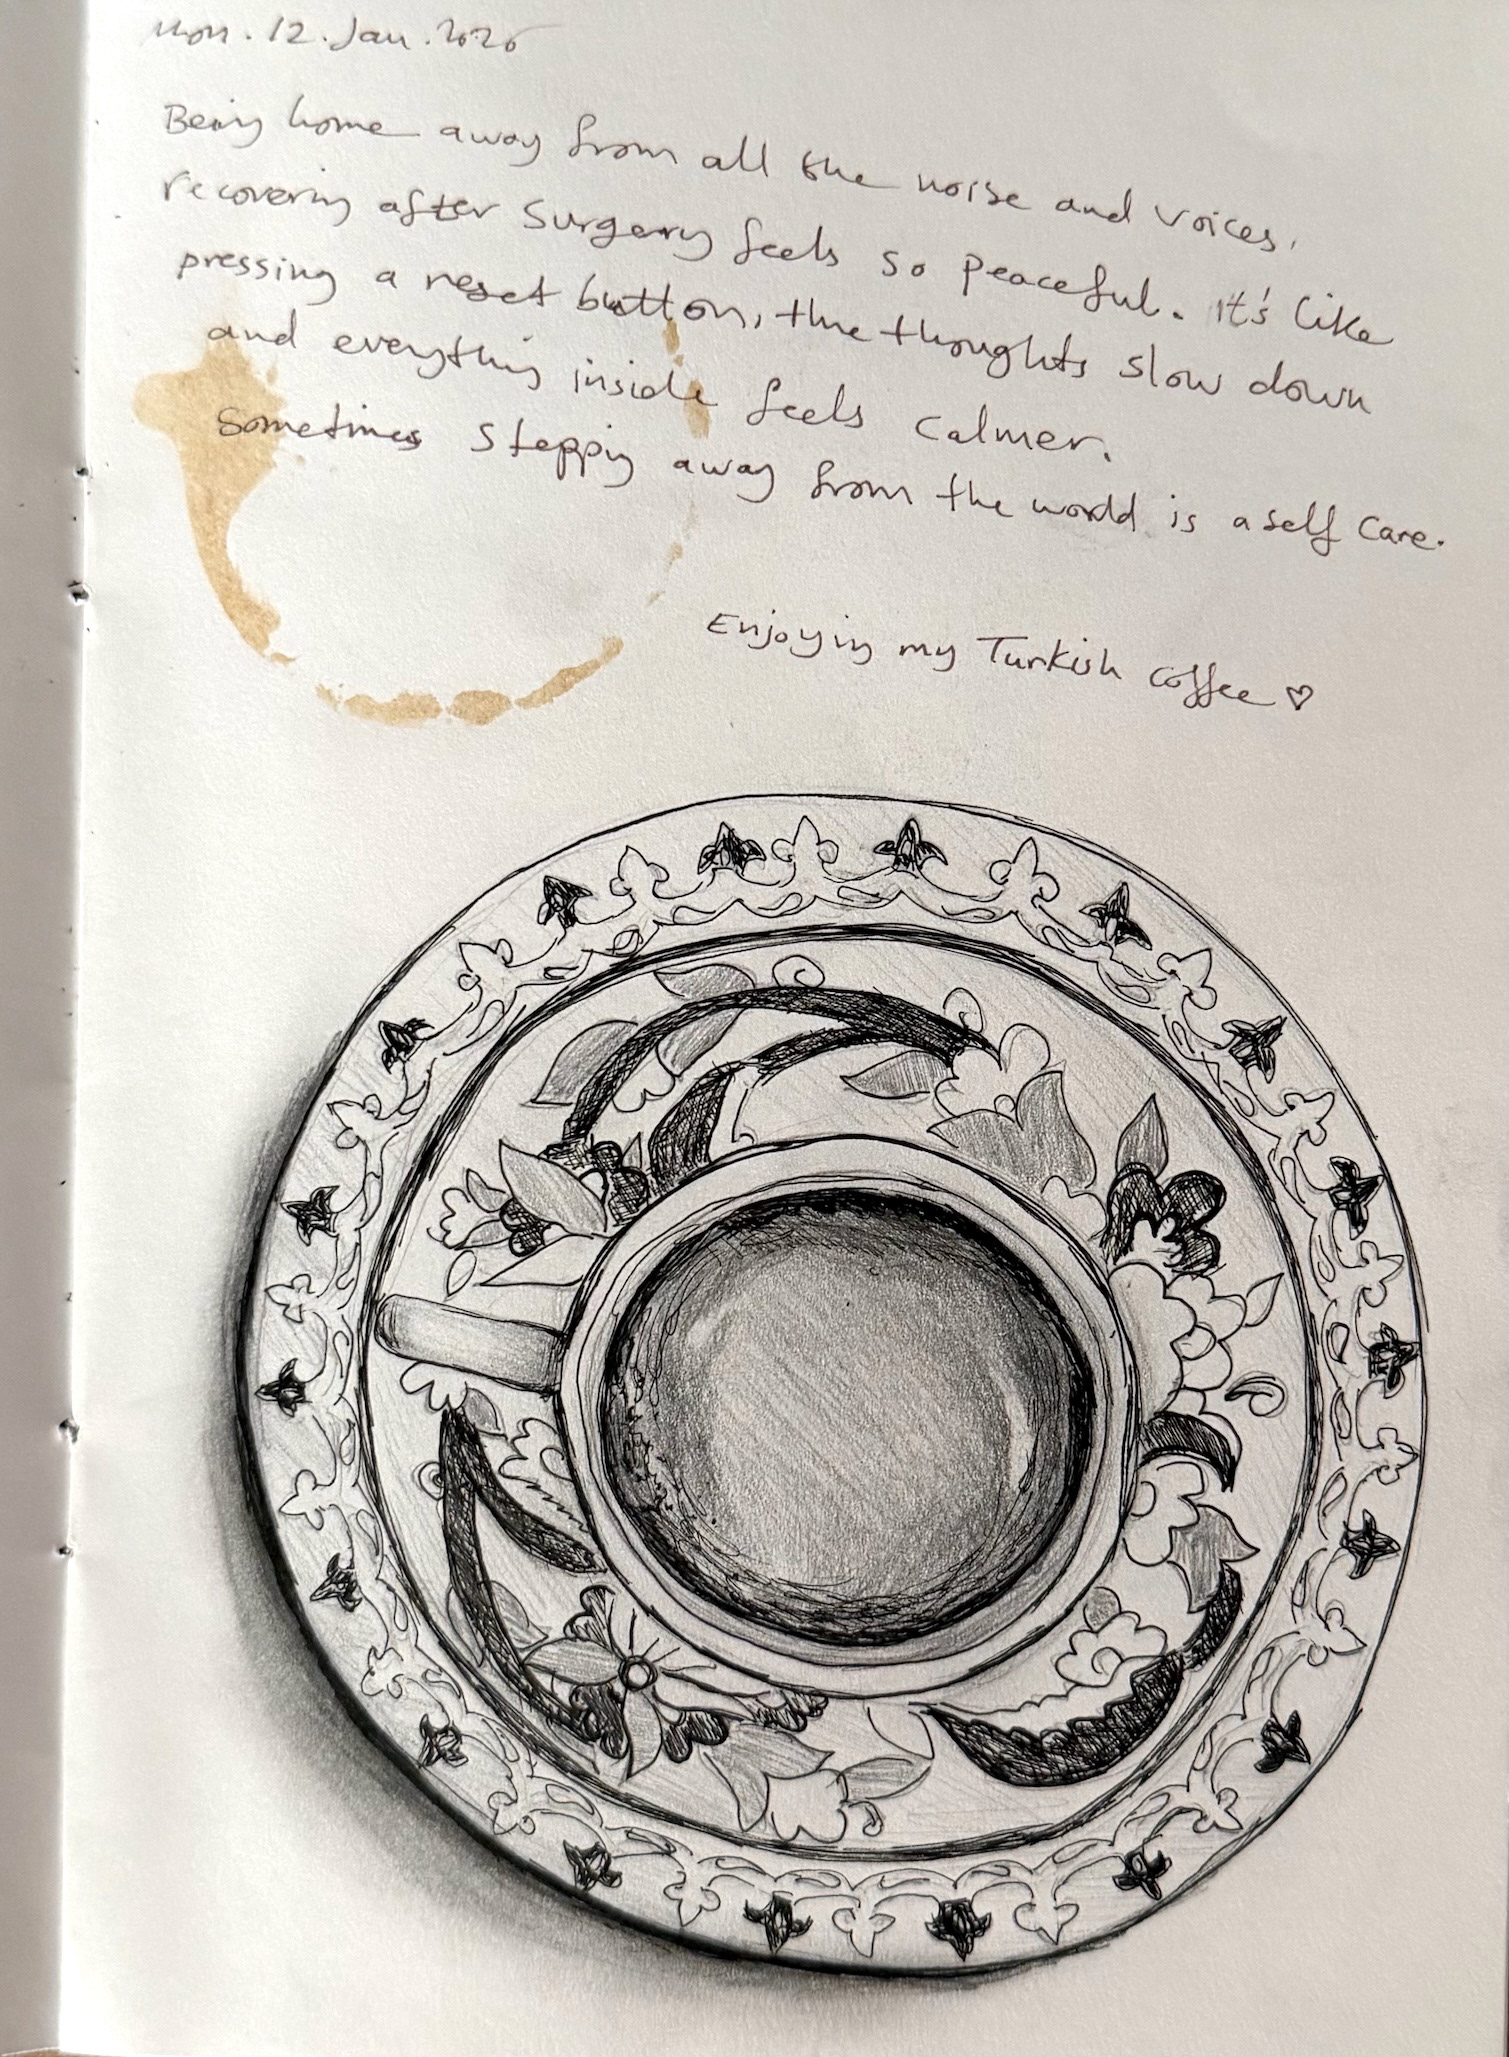 Mon. 12. Jan. 2026
Being home away from all the noise and voices,
recovering after surgery feels so peaceful. it's like
pressing a reset button, the thoughts slow down
and everything inside feels calmer.
Sometimes stepping away from the world is a self care.
Enjoying my Turkish coffee ♡